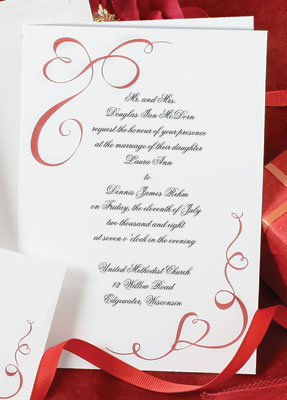 Mr. and Mrs.
Douglas Ian McDorn
request the honour of your presence
at the marriage of their daughter
Laura Ann
to
Dennis James Rehm
on Friday, the eleventh of July
two thousand and eight
at seven o'clock in the evening
United Methodist Church
12 Willow Road
Edgewater, Wisconsin